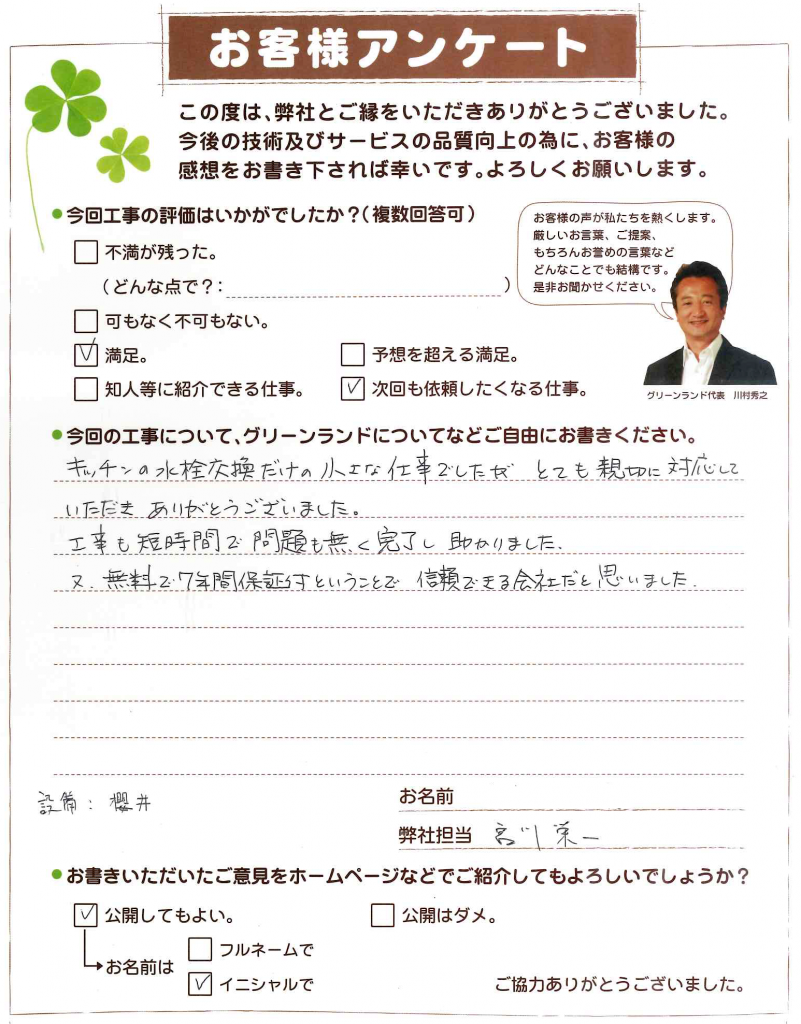 お客様アンケート
この度は、弊社とご縁をいただきありがとうございました。
今後の技術及びサービスの品質向上の為に、お客様の
感想をお書き下されば幸いです。よろしくお願いします。
●今回工事の評価はいかがでしたか？(複数回答可)
不満が残った。
(どんな点で？: )
可もなく不可もない。
✓ 満足。
予想を超える満足。
知人等に紹介できる仕事。
✓ 次回も依頼したくなる仕事。
お客様の声が私たちを熱くします。
厳しいお言葉、ご提案、
もちろんお誉めの言葉など
どんなことでも結構です。
是非お聞かせください。
グリーンランド代表 川村秀之
●今回の工事について、グリーンランドについてなどご自由にお書きください。
キッチンの水栓交換だけの小さな仕事でしたが とても親切に対応して
いただき ありがとうございました。
工事も短時間で問題も無く完了し 助かりました.
又. 無料で7年間保証付ということで 信頼できる会社だと思いました.
設備: 櫻井
お名前
弊社担当 宮川 栄一
●お書きいただいたご意見をホームページなどでご紹介してもよろしいでしょうか？
✓ 公開してもよい。
公開はダメ。
お名前は
フルネームで
✓ イニシャルで
ご協力ありがとうございました。